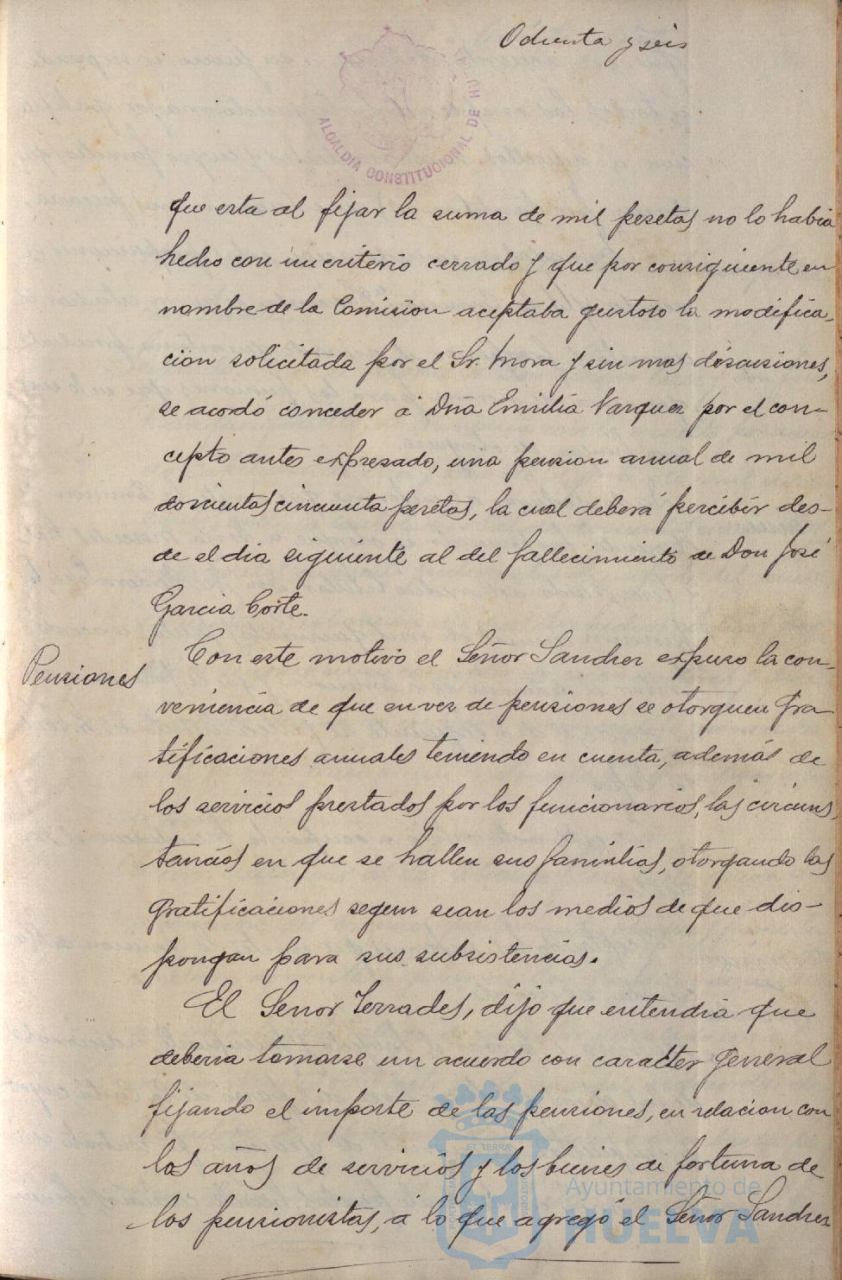 Ochenta y seis
ALCALDIA CONSTITUCIONAL DE HU
que esta al fijar la suma de mil pesetas no lo habia
hecho con un criterio cerrado y que por consiguiente en
nombre de la Comision aceptaba gustoso la modifica-
cion solicitada por el Sr. Mora y sin mas discusiones,
se acordó conceder á Dña Emilia Vazquez por el con-
cepto antes expresado, una pension anual de mil
doscientas cincuenta pesetas, la cual deberá percibir des-
de el dia siguiente al del fallecimiento de Don José
Garcia Corte.
Pensiones
Con este motivo el Señor Sanchez expuso la con-
veniencia de que en vez de pensiones se otorguen gra-
tificaciones anuales teniendo en cuenta, además de
los servicios prestados por los funcionarios, las circuns-
tancias en que se hallen sus familias, otorgando las
gratificaciones segun sean los medios de que dis-
pongan para sus subsistencias.
El Señor Terrades, dijo que entendia que
deberia tomarse un acuerdo con caracter general
fijando el importe de las pensiones, en relacion con
los años de servicios y los bienes de fortuna de
los pensionistas, á lo que agregó el Señor Sanchez
Ayuntamiento de
HUELVA